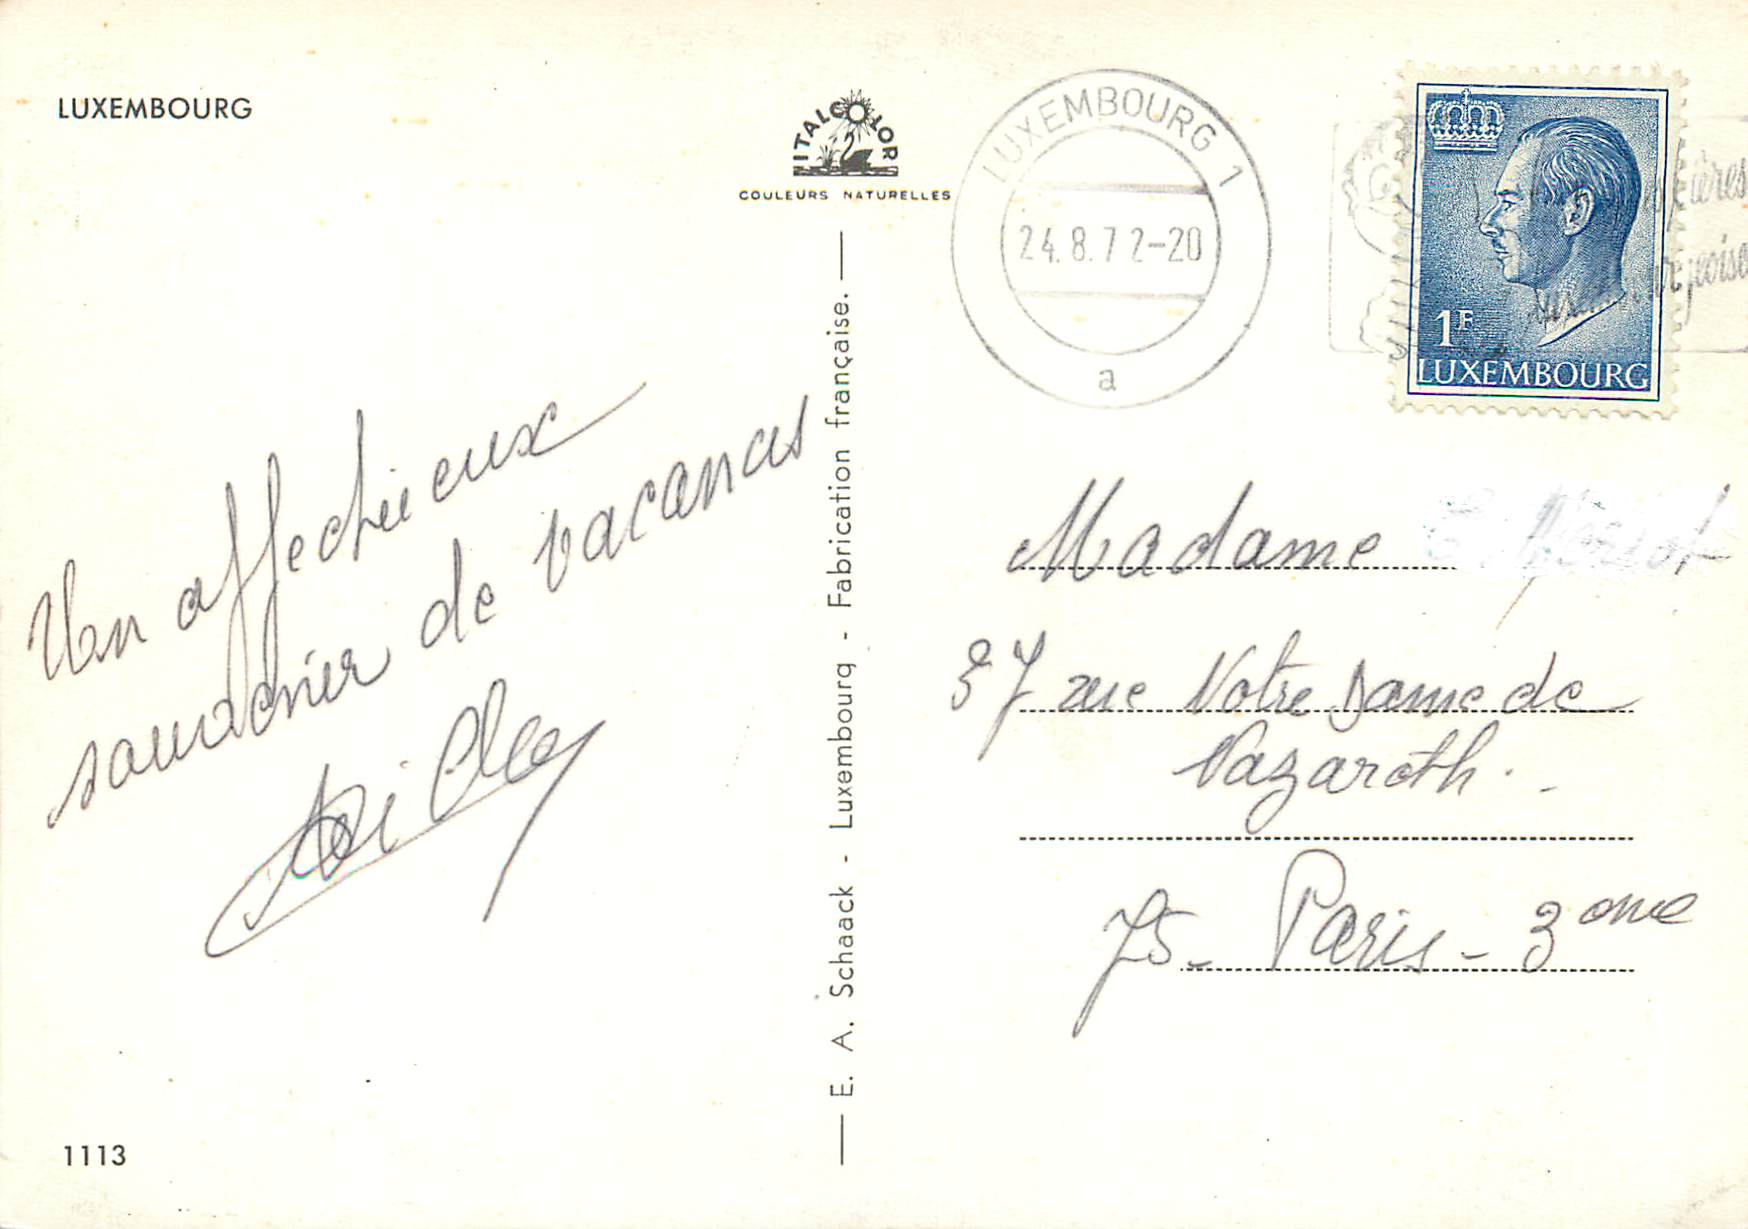 LUXEMBOURG
ITALCOLOR
COULEURS NATURELLES
LUXEMBOURG 1
24.8.72-20
a
1F
LUXEMBOURG
Un affectueux
souvenir de vacances
E. A. Schaack - Luxembourg - Fabrication française.
Madame
37 rue Notre Dame de
Nazareth.
75- Paris - 3eme
1113